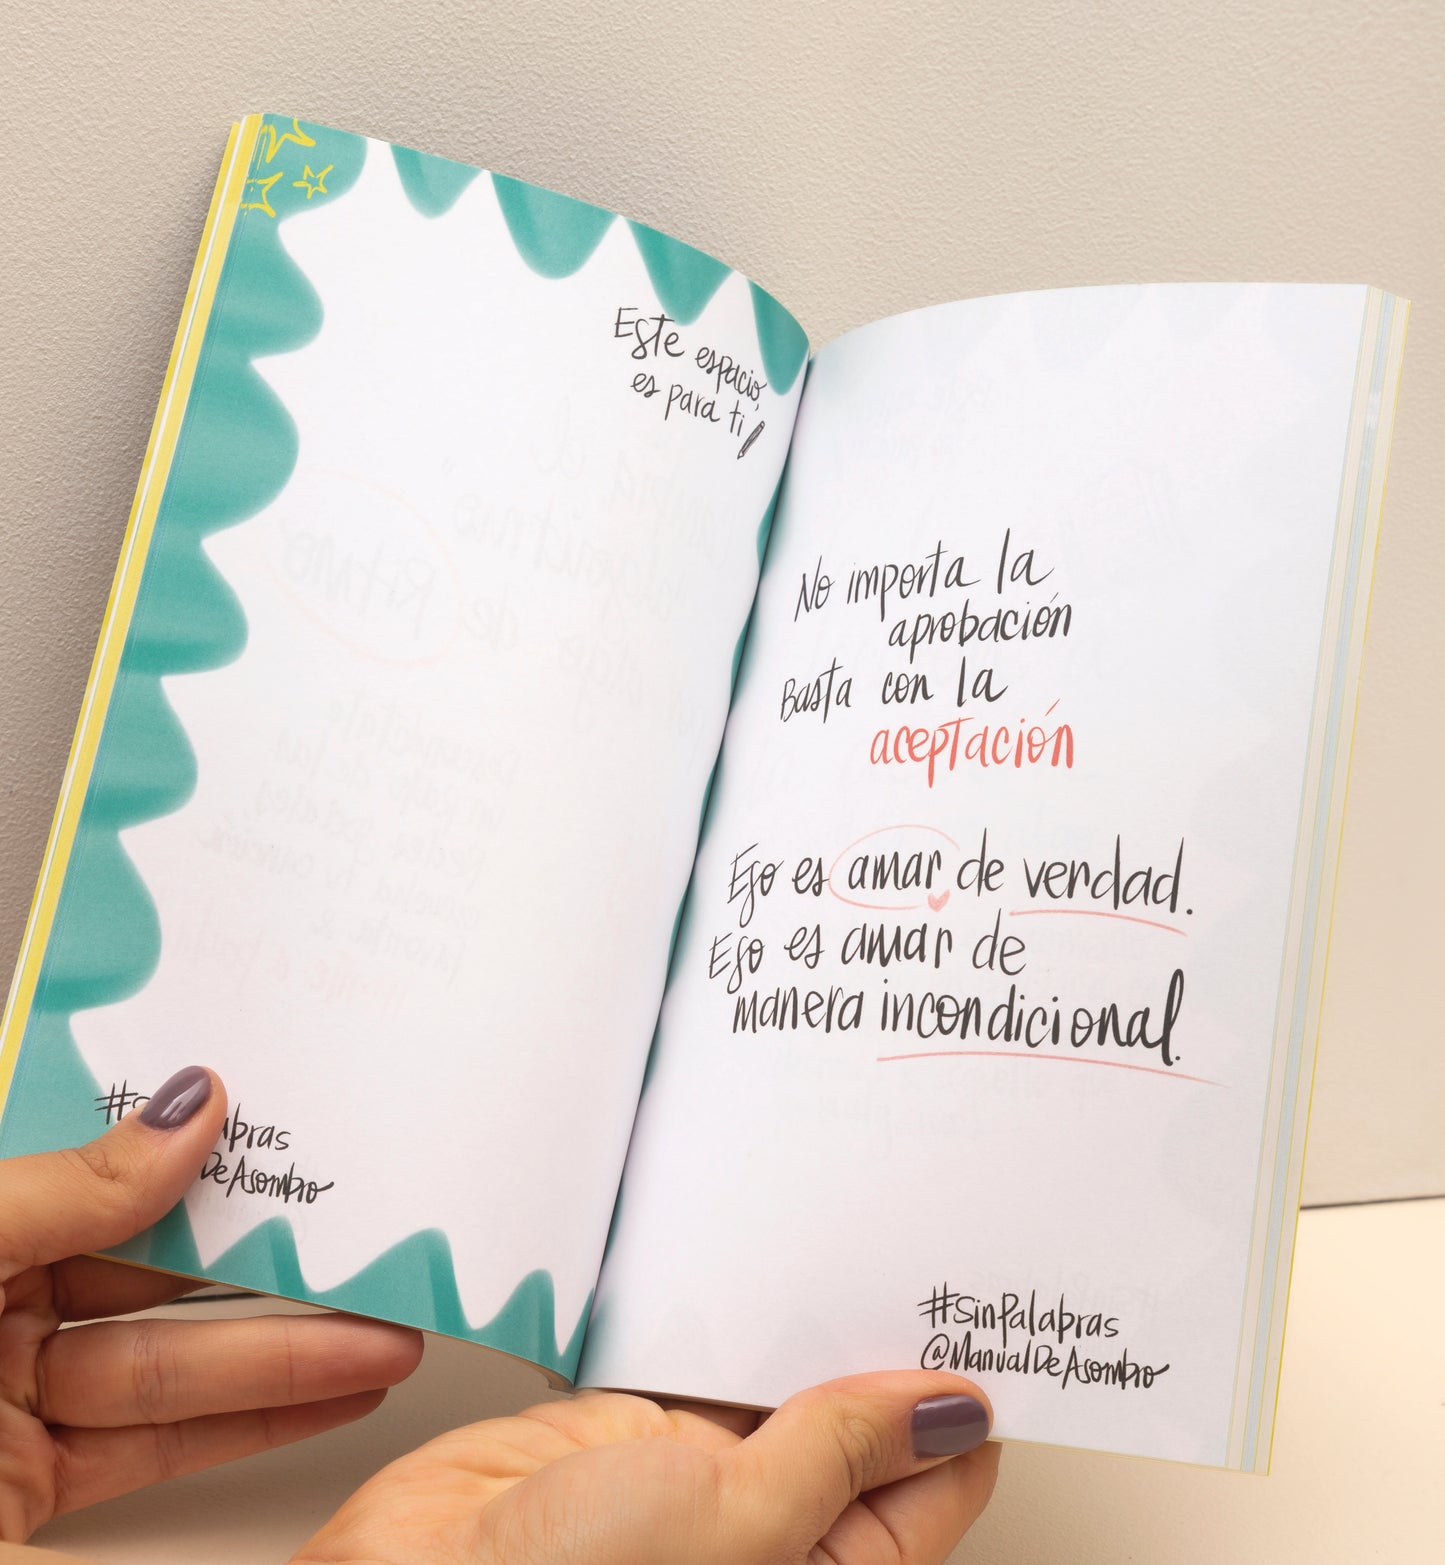 Este espacio,
es para ti
abras
DeAsombro
No importa la
aprobación
Basta con la
aceptación
Eso es amar de verdad.
Eso es amar de
manera incondicional.
#SinPalabras
@ManualDeAsombro